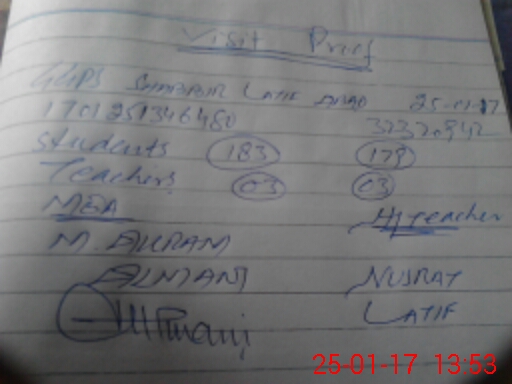 Visit Proof
GGPS SHABBIR LATIF ABAD 25-01-17
1701251346480
Students 183 179
Teachers 03 03
MEA Hd teacher
M. AKRAM
ALMANI NUSRAT
LATIF
25-01-17 13:53